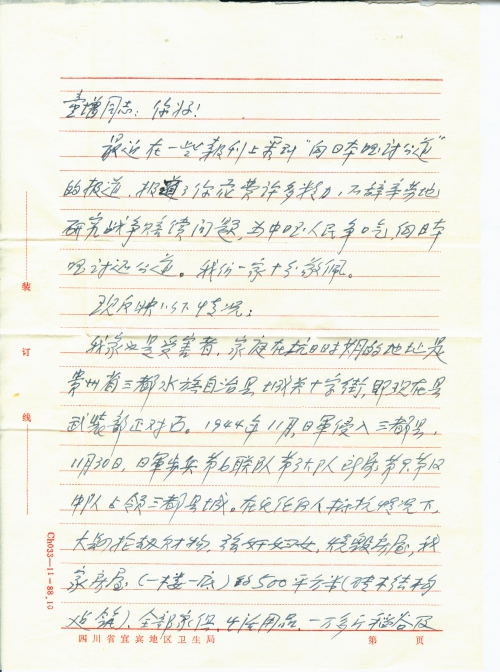 童增同志：你好！
最近在一些报刊上看到"向日本国讨公道"
的报道，报道了你花费许多精力，不辞辛劳地
研究战争赔偿问题，为中国人民争口气，向日本
国讨还公道。我们一家十分敬佩。
现反映以下情况：
我家也是受害者，家庭在抗日时期的地址是
贵州省三都水族自治县城关十字街，即现在县
武装部正对面。1944年11月，日军侵入三都县，
11月30日，日军步兵第 联队第3大队
中队占领三都县城。在无任何人抵抗情况下，
大肆抢劫财物，强奸妇女，烧毁房屋，我
家房屋（一楼一底）约500平方米（砖木结构
），全部家俱、生活用品，一万多斤稻谷及
装
订
线
Ch033—11—88.10
四川省宜宾地区卫生局
第 页